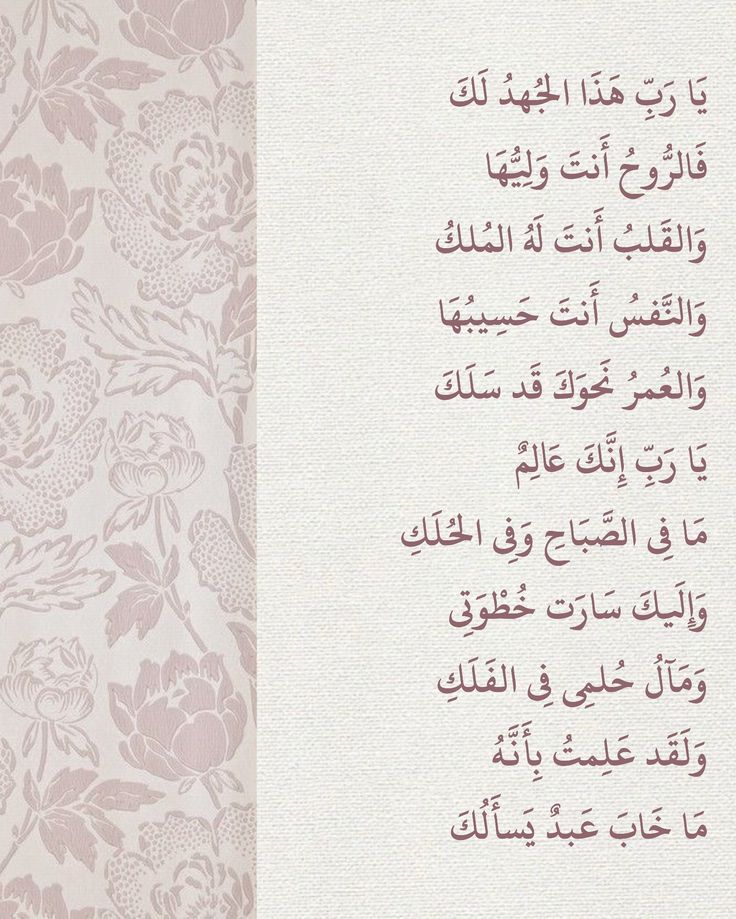 يَا رَبِّ هَذَا الجُهدُ لَكَ
فَالرُّوحُ أَنتَ وَلِيُّهَا
وَالقَلبُ أَنتَ لَهُ المُلكُ
وَالنَّفسُ أَنتَ حَسِيبُهَا
وَالعُمرُ نَحوَكَ قَد سَلَكَ
يَا رَبِّ إِنَّكَ عَالِمٌ
مَا فِي الصَّبَاحِ وَفِي الحُلَكِ
وَإِلَيكَ سَارَت خُطْوَتِي
وَمَآلُ حُلمِي فِي الفَلَكِ
وَلَقَد عَلِمتُ بِأَنَّهُ
مَا خَابَ عَبدٌ يَسأَلُكَ